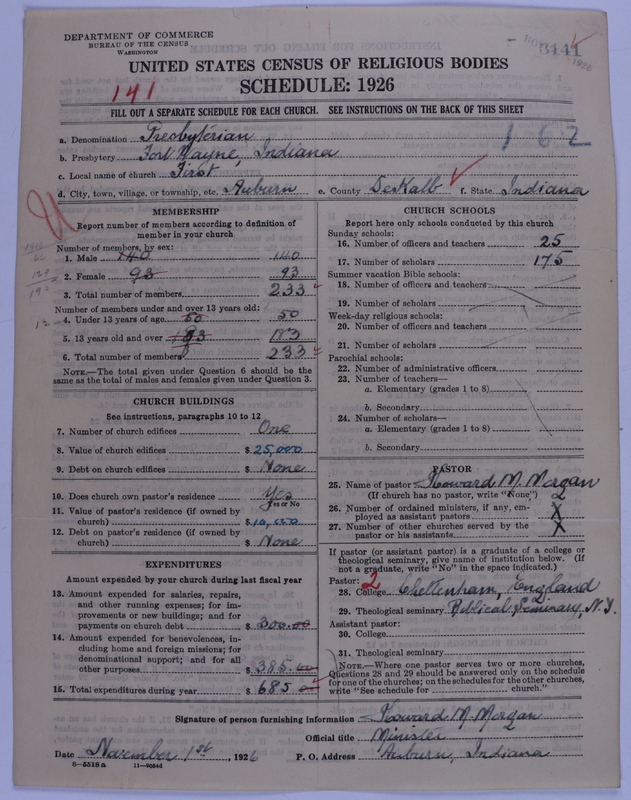 DEPARTMENT OF COMMERCE
BUREAU OF THE CENSUS
WASHINGTON
UNITED STATES CENSUS OF RELIGIOUS BODIES
SCHEDULE: 1926
141
FILL OUT A SEPARATE SCHEDULE FOR EACH CHURCH. SEE INSTRUCTIONS ON THE BACK OF THIS SHEET
1 6 2
a. Denomination Presbyterian
b. Presbytery Fort Wayne, Indiana
c. Local name of church First
d. City, town, village, or township, etc. Auburn e. County DeKalb f. State Indiana
MEMBERSHIP
Report number of members according to definition of member in your church
Number of members, by sex:
1. Male 140 140
2. Female 93 93
3. Total number of members 233
Number of members under and over 13 years old:
4. Under 13 years of age 50 50
5. 13 years old and over 183 183
6. Total number of members 233
NOTE.—The total given under Question 6 should be
same as the total of males and females given under Question 3.
CHURCH BUILDINGS
See instructions, paragraphs 10 to 12
7. Number of church edifices One
8. Value of church edifices $ 25,000
9. Debt on church edifices $ None
10. Does church own pastor's residence Yes
Yes or No
11. Value of pastor's residence (if owned by
church) $ 10,000
12. Debt on pastor's residence (if owned by
church) $ None
EXPENDITURES
Amount expended by your church during last fiscal year
13. Amount expended for salaries, repairs,
and other running expenses; for im-
provements or new buildings; and for
payments on church debt $ 300.00
14. Amount expended for benevolences, in-
cluding home and foreign missions; for
denominational support; and for all
other purposes $ 385.00
15. Total expenditures during year $ 685.00
CHURCH SCHOOLS
Report here only schools conducted by this church
Sunday schools:
16. Number of officers and teachers 25
17. Number of scholars 175
Summer vacation Bible schools:
18. Number of officers and teachers
19. Number of scholars
Week-day religious schools:
20. Number of officers and teachers
21. Number of scholars
Parochial schools:
22. Number of administrative officers
23. Number of teachers—
a. Elementary (grades 1 to 8)
b. Secondary
24. Number of scholars—
a. Elementary (grades 1 to 8)
b. Secondary
PASTOR
25. Name of pastor Howard M. Morgan
(If church has no pastor, write "None") 2
26. Number of ordained ministers, if any, em-
ployed as assistant pastors X
27. Number of other churches served by the
pastor or his assistants X
If pastor (or assistant pastor) is a graduate of a college or
theological seminary, give name of institution below. (If
not a graduate, write "No" in the space indicated.)
Pastor: 2
28. College Cheltenham, England
29. Theological seminary Biblical Seminary, N.Y.
Assistant pastor:
30. College
31. Theological seminary
NOTE.—Where one pastor serves two or more churches,
Questions 28 and 29 should be answered only on the schedule
for one of the churches; on the schedules for the other churches,
write "See schedule for church."
Signature of person furnishing information Howard M. Morgan
Official title Minister
Date November 1st, 1926 P. O. Address Auburn, Indiana
8-5518a 11-9024d